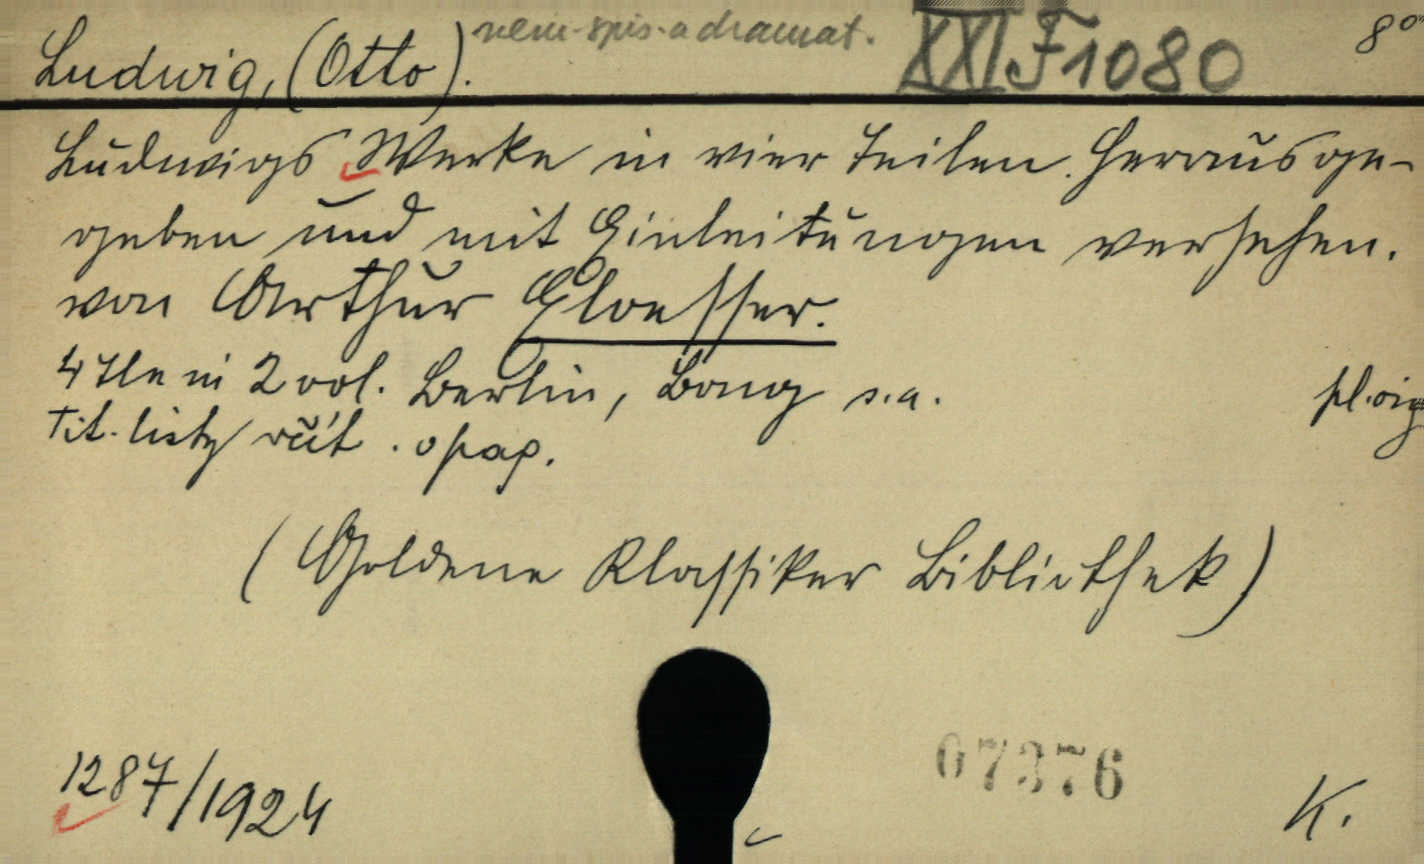 Ludwig, (Otto). něm. spis. a dramat. XXI F 1080 8°
Ludwigs Werke in vier Teilen. Herausge-
geben und mit Einleitungen versehen.
von Arthur Eloesser.
4 Tle in 2 vol. Berlin, Bong s.a. pl. orig
Tit. listy rýt. opap.
(Goldene Klassiker Bibliothek)
07376
1287/1924 K.